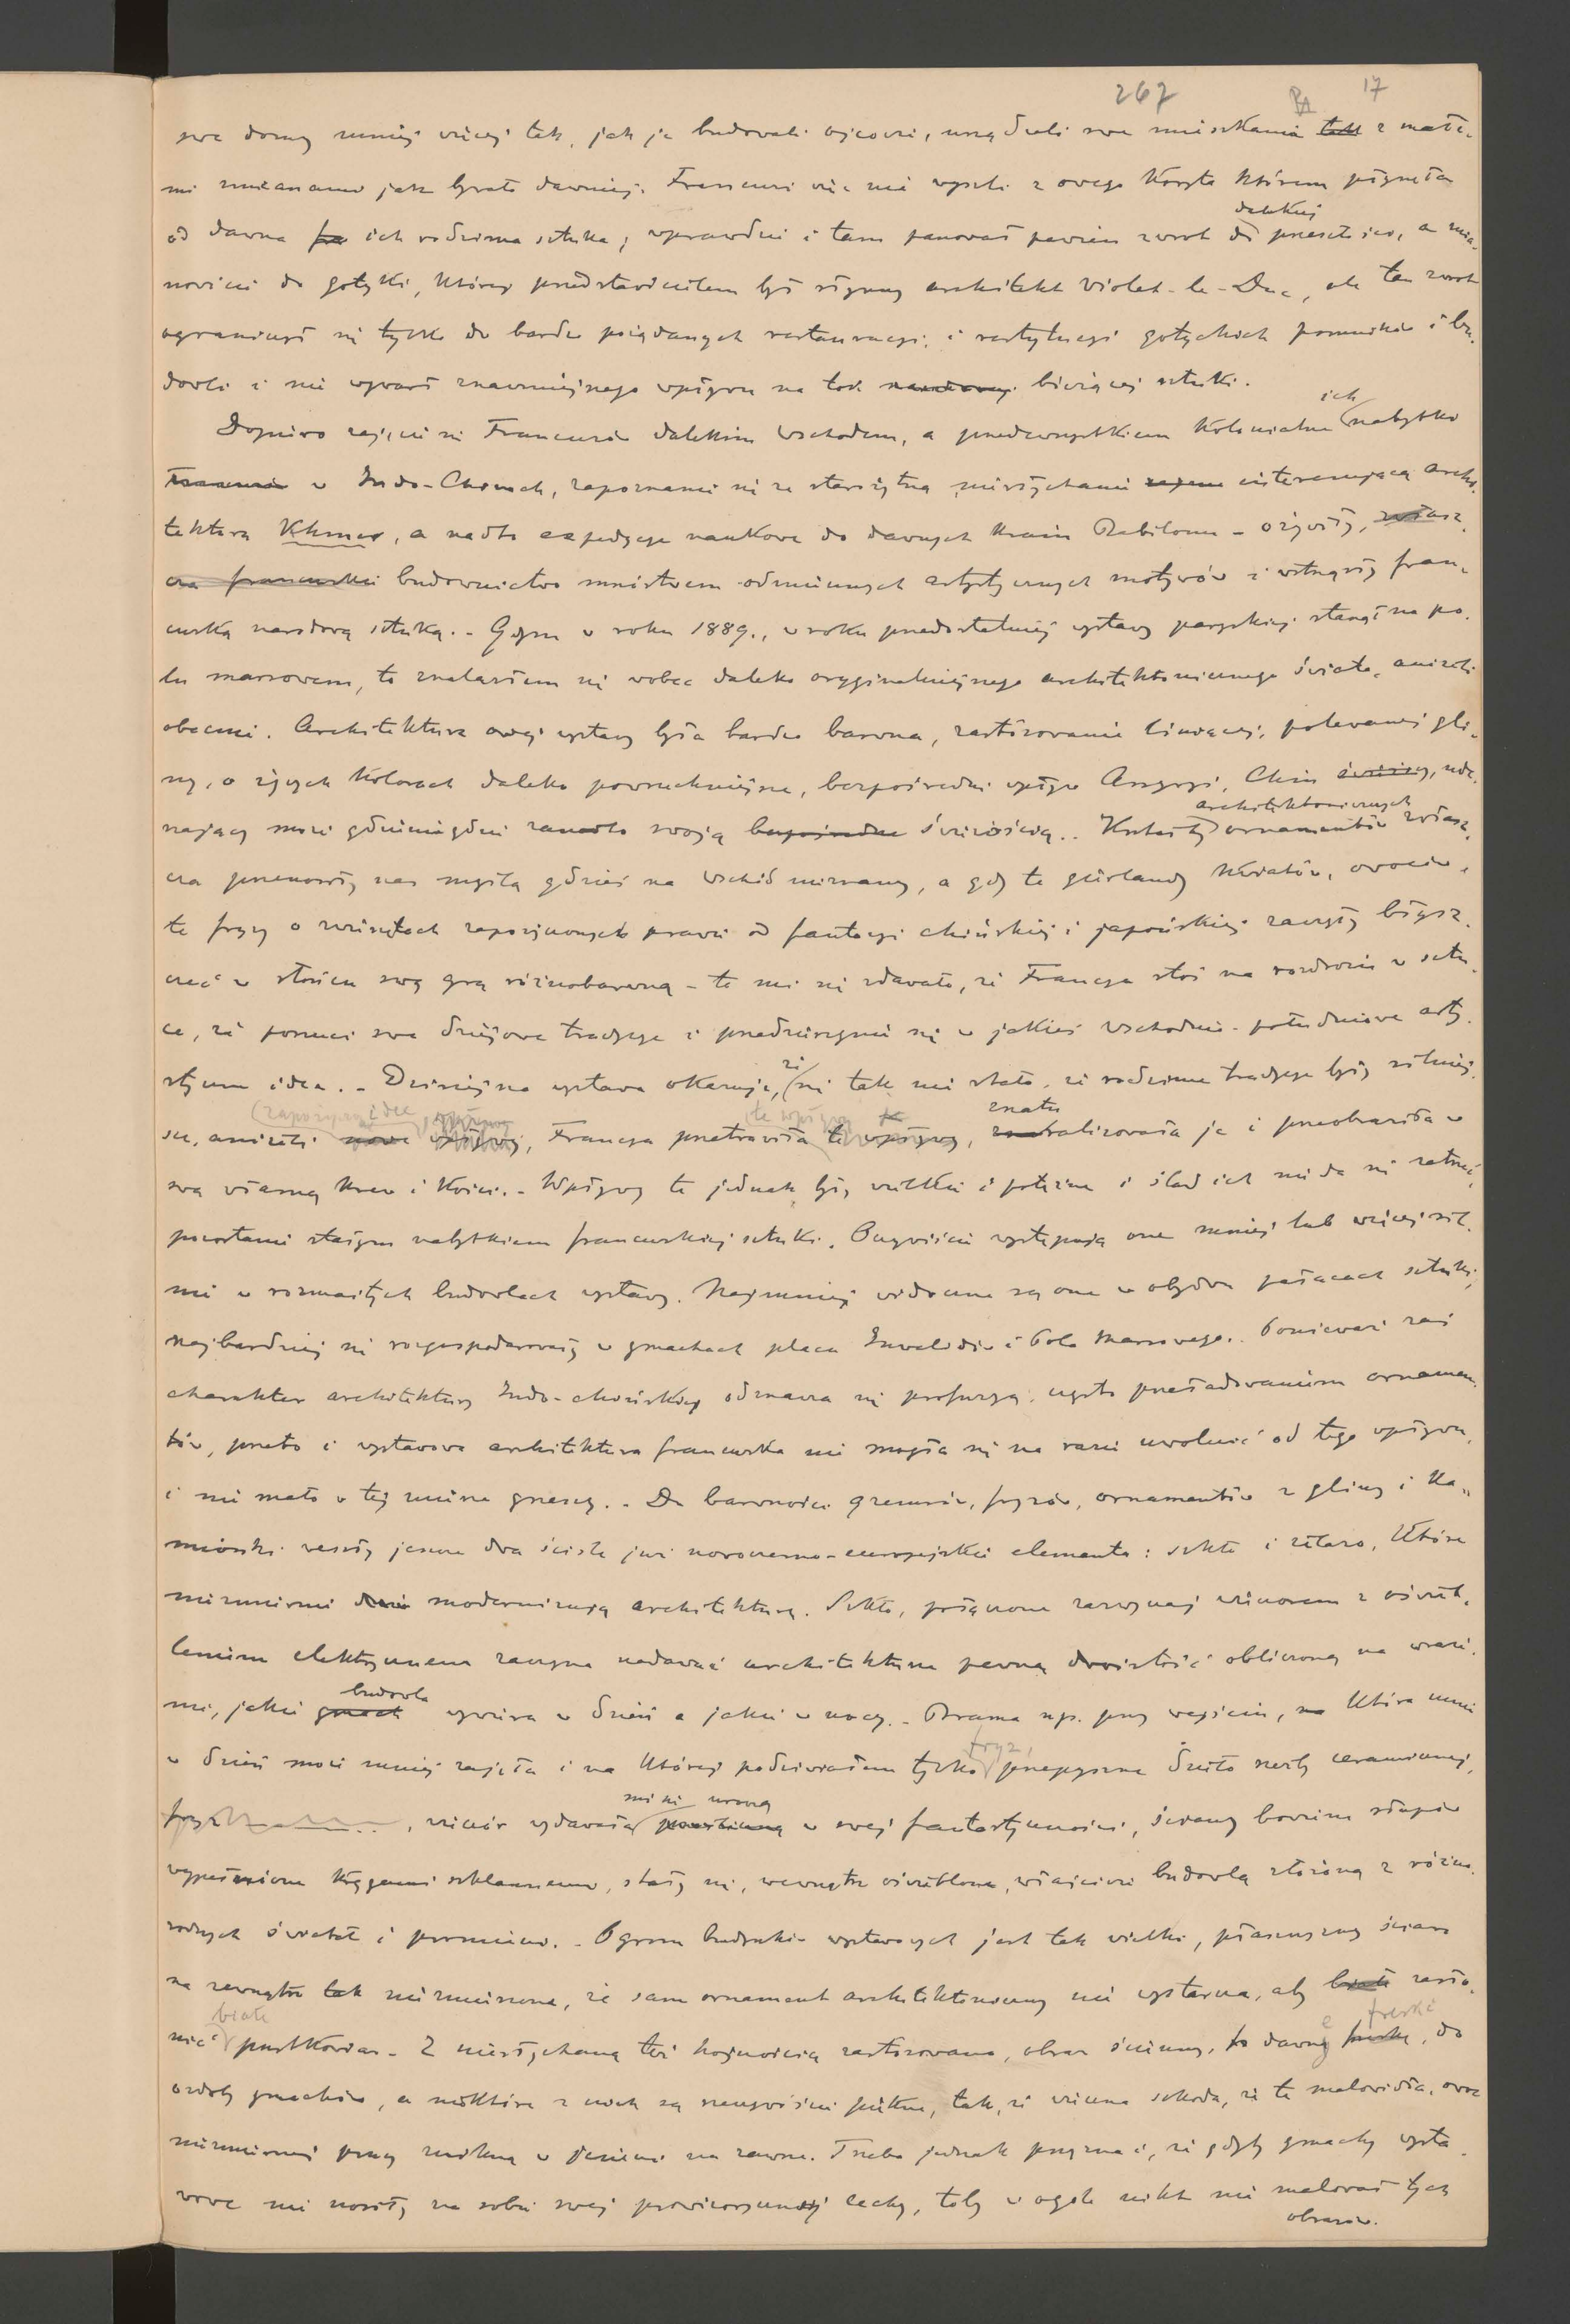 267 17
swe domy mniej więcej tak, jak je budowali ojcowie, urządzali swe mieszkania tak z małe-
mi zmianami jak bywało dawniej. Francuzi więc nie wyszli z owego koryta którem płynęła
dalekiej
od dawna ich rodzima sztuka; wprawdzie i tam panował pewien zwrot do przeszłości, a mia-
nowicie do gotyki, której przedstawicielem był słynny architekt Violet-le-Duc, ale ten zwrot
ograniczył się tylko do bardzo pożądanych restauracyi i restytucyi gotyckich pomników i bu-
dowli i nie wywarł znaczniejszego wpływu na tok bieżącej sztuki.
ich
Dopiero zajęcie się Francuzów dalekim Wschodem, a przedewszystkiem kolonialne nabytki
w Indo-Chinach, zapoznanie się ze starożytną niesłychanie interesującą archi-
tekturą Khmer, a nadto expedycye naukowe do dawnych krain Babilonu - ożywiły, zwłasz-
cza francuskie budownictwo mnóstwem odmiennych artystycznych motywów i wstrząsły fran-
cuską narodową sztuką. - Gdym w roku 1889., w roku przedostatniej wystawy paryskiej stanął na po-
lu marsowem, to znalazłem się wobec daleko oryginalniejszego architektonicznego świata, aniżeli
obecnie. Architektura owej wystawy była bardzo barwna, zastosowanie lśniącej, polewanej gli-
ny, o żywych kolorach daleko powszechniejsze, bezpośredni wpływ Assyryi, Chin świeższy, ude-
architektonicznych
rzający może gdzieniegdzie zanadto swoją świeżością.. Kształty ornamentów zwłasz-
cza przenosiły nas myślą gdzieś na Wschód nieznany, a gdy te girlandy kwiatów, owoców,
te fryzy o zwierzętach zapożyczonych prawie od fantazyi chińskiej i japońskiej zaczęły błysz-
czeć w słońcu swą grą różnobarwną - to mi się zdawało, że Francya stoi na rozdrożu w sztu-
ce, że porzuci swe dziejowe tradycye i przedzierzgnie się w jakieś wschodnio-południowe arty-
że
styczne idea. - Dzisiejsza wystawa okazuje, się tak nie stało, że rodzime tradycye były silniej-
(zapożyczone idee, wpływy te wpływy znatu
sze, aniżeli nowe wpływy, Francya przetrawiła te wpływy, ralizowała je i przeobraziła w
swą własną krew i kości. - Wpływy te jednak były wielkie i potężne i ślad ich nie da się zatrzeć,
pozostanie stałym nabytkiem francuskiej sztuki. Oczywiście występują one mniej lub więcej sil-
nie w rozmaitych budowlach wystawy. Najmniej widoczne są one w obydwu pałacach sztuki,
najbardziej się rozgospodarowały w gmachach placu Inwalidów i Pola Marsowego. Ponieważ zaś
charakter architektury Indo-chińskiej odznacza się profuzyą, często przeładowaniem ornamen-
tów, przeto i wystawowa architektura francuska nie mogła się na razie uwolnić od tego wpływu,
i nie mało w tej mierze grzeszy. - Do barwności gzemsów, fryzów, ornamentów z gliny i ka-
mionki weszły jeszcze dwa ściśle już nowoczesno-europejskie elementa: szkło i żelazo, które
niezmiernie modernizują architekturę. Szkło, połączone zazwyczaj wieczorem z oświet-
leniem elektrycznem zaczyna nadawać architekturze pewną dwoistość obliczoną na wraże-
budowla
nie, jakie gmach wywiera w dzień a jakie w nocy. - Brama np. przy wejściu, która mnie
fryz,
w dzień może mniej zajęła i na której podziwiałem tylko przepyszne dzieło rzeźby ceramicznej,
mi się uroczą
fryz, wieczór wydawała w swej fantastyczności, ściany bowiem słupów
wypełnione taflami szklannemi, stały się, wewnątrz oświetlone, właściwie budowlą złożoną z różno-
rodnych świateł i promieni. - Ogrom budynków wystawowych jest tak wielki, płaszczyzny ścian
na zewnątrz tak niezmierzone, że sam ornament architektoniczny nie wystarcza, aby zasło-
białe freski
nić pustkowia. - Z niesłychaną też hojnością zastosowano, obraz ścienny, dawne, do
ozdoby gmachów, a niektóre z nich są rzeczywiście piękne, tak, że wieczna szkoda, że te malowidła, owoc
niezmiernej pracy znikną w jesieni na zawsze. Trzeba jednak przyznać, że gdyby gmachy wysta-
wowe nie nosiły na sobie swej prowizorycznej cechy, toby w ogóle nikt nie malował tych
obrazów.